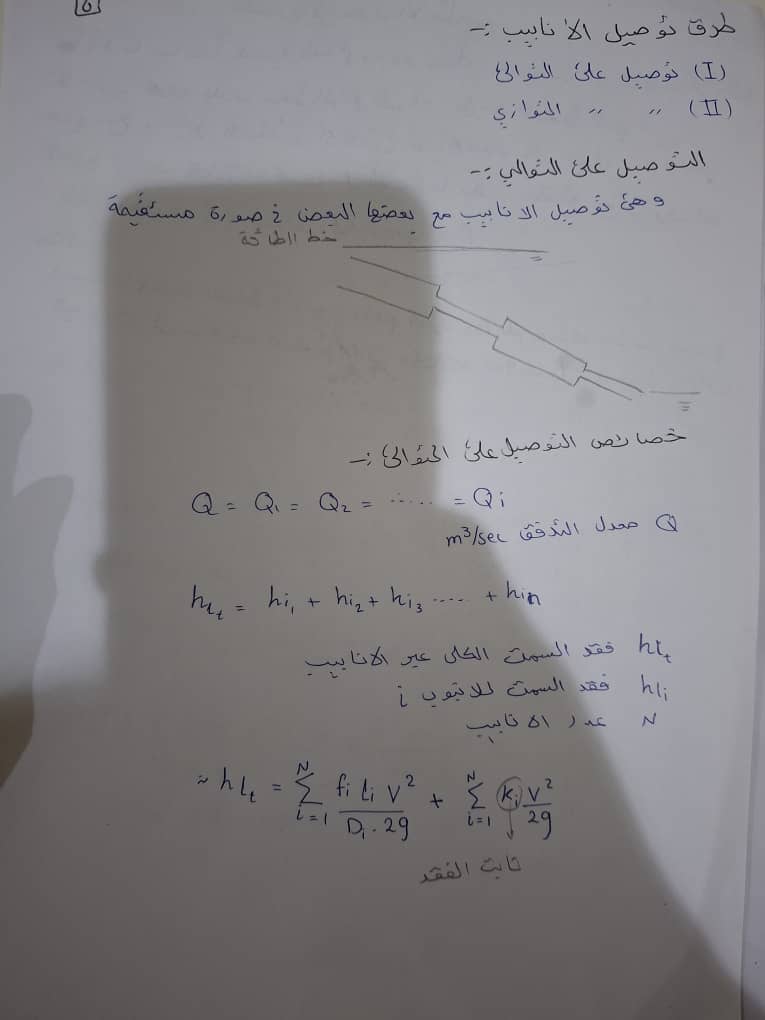 6
طرق توصيل الأنابيب :-
(I) توصيل على التوالي
(II) 〃 〃 التوازي
التوصيل على التوالي :-
وهي توصيل الانابيب مع بعضها البعض في صورة مستقيمة
خط الطاقة
خصائص التوصيل على التوالي :-
Q = Q₁ = Q₂ = ...... = Qi
Q معدل التدفق m³/sec
hLt = hi₁ + hi₂ + hi₃ ..... + hin
hLt فقد السمت الكلى عبر الانابيب
hli فقد السمت للانبوب i
N عدد الانابيب
∴ hLt = Σ(i=1→N) fi Li V² / Di . 2g + Σ(i=1→N) ki V² / 2g
ثابت الفقد